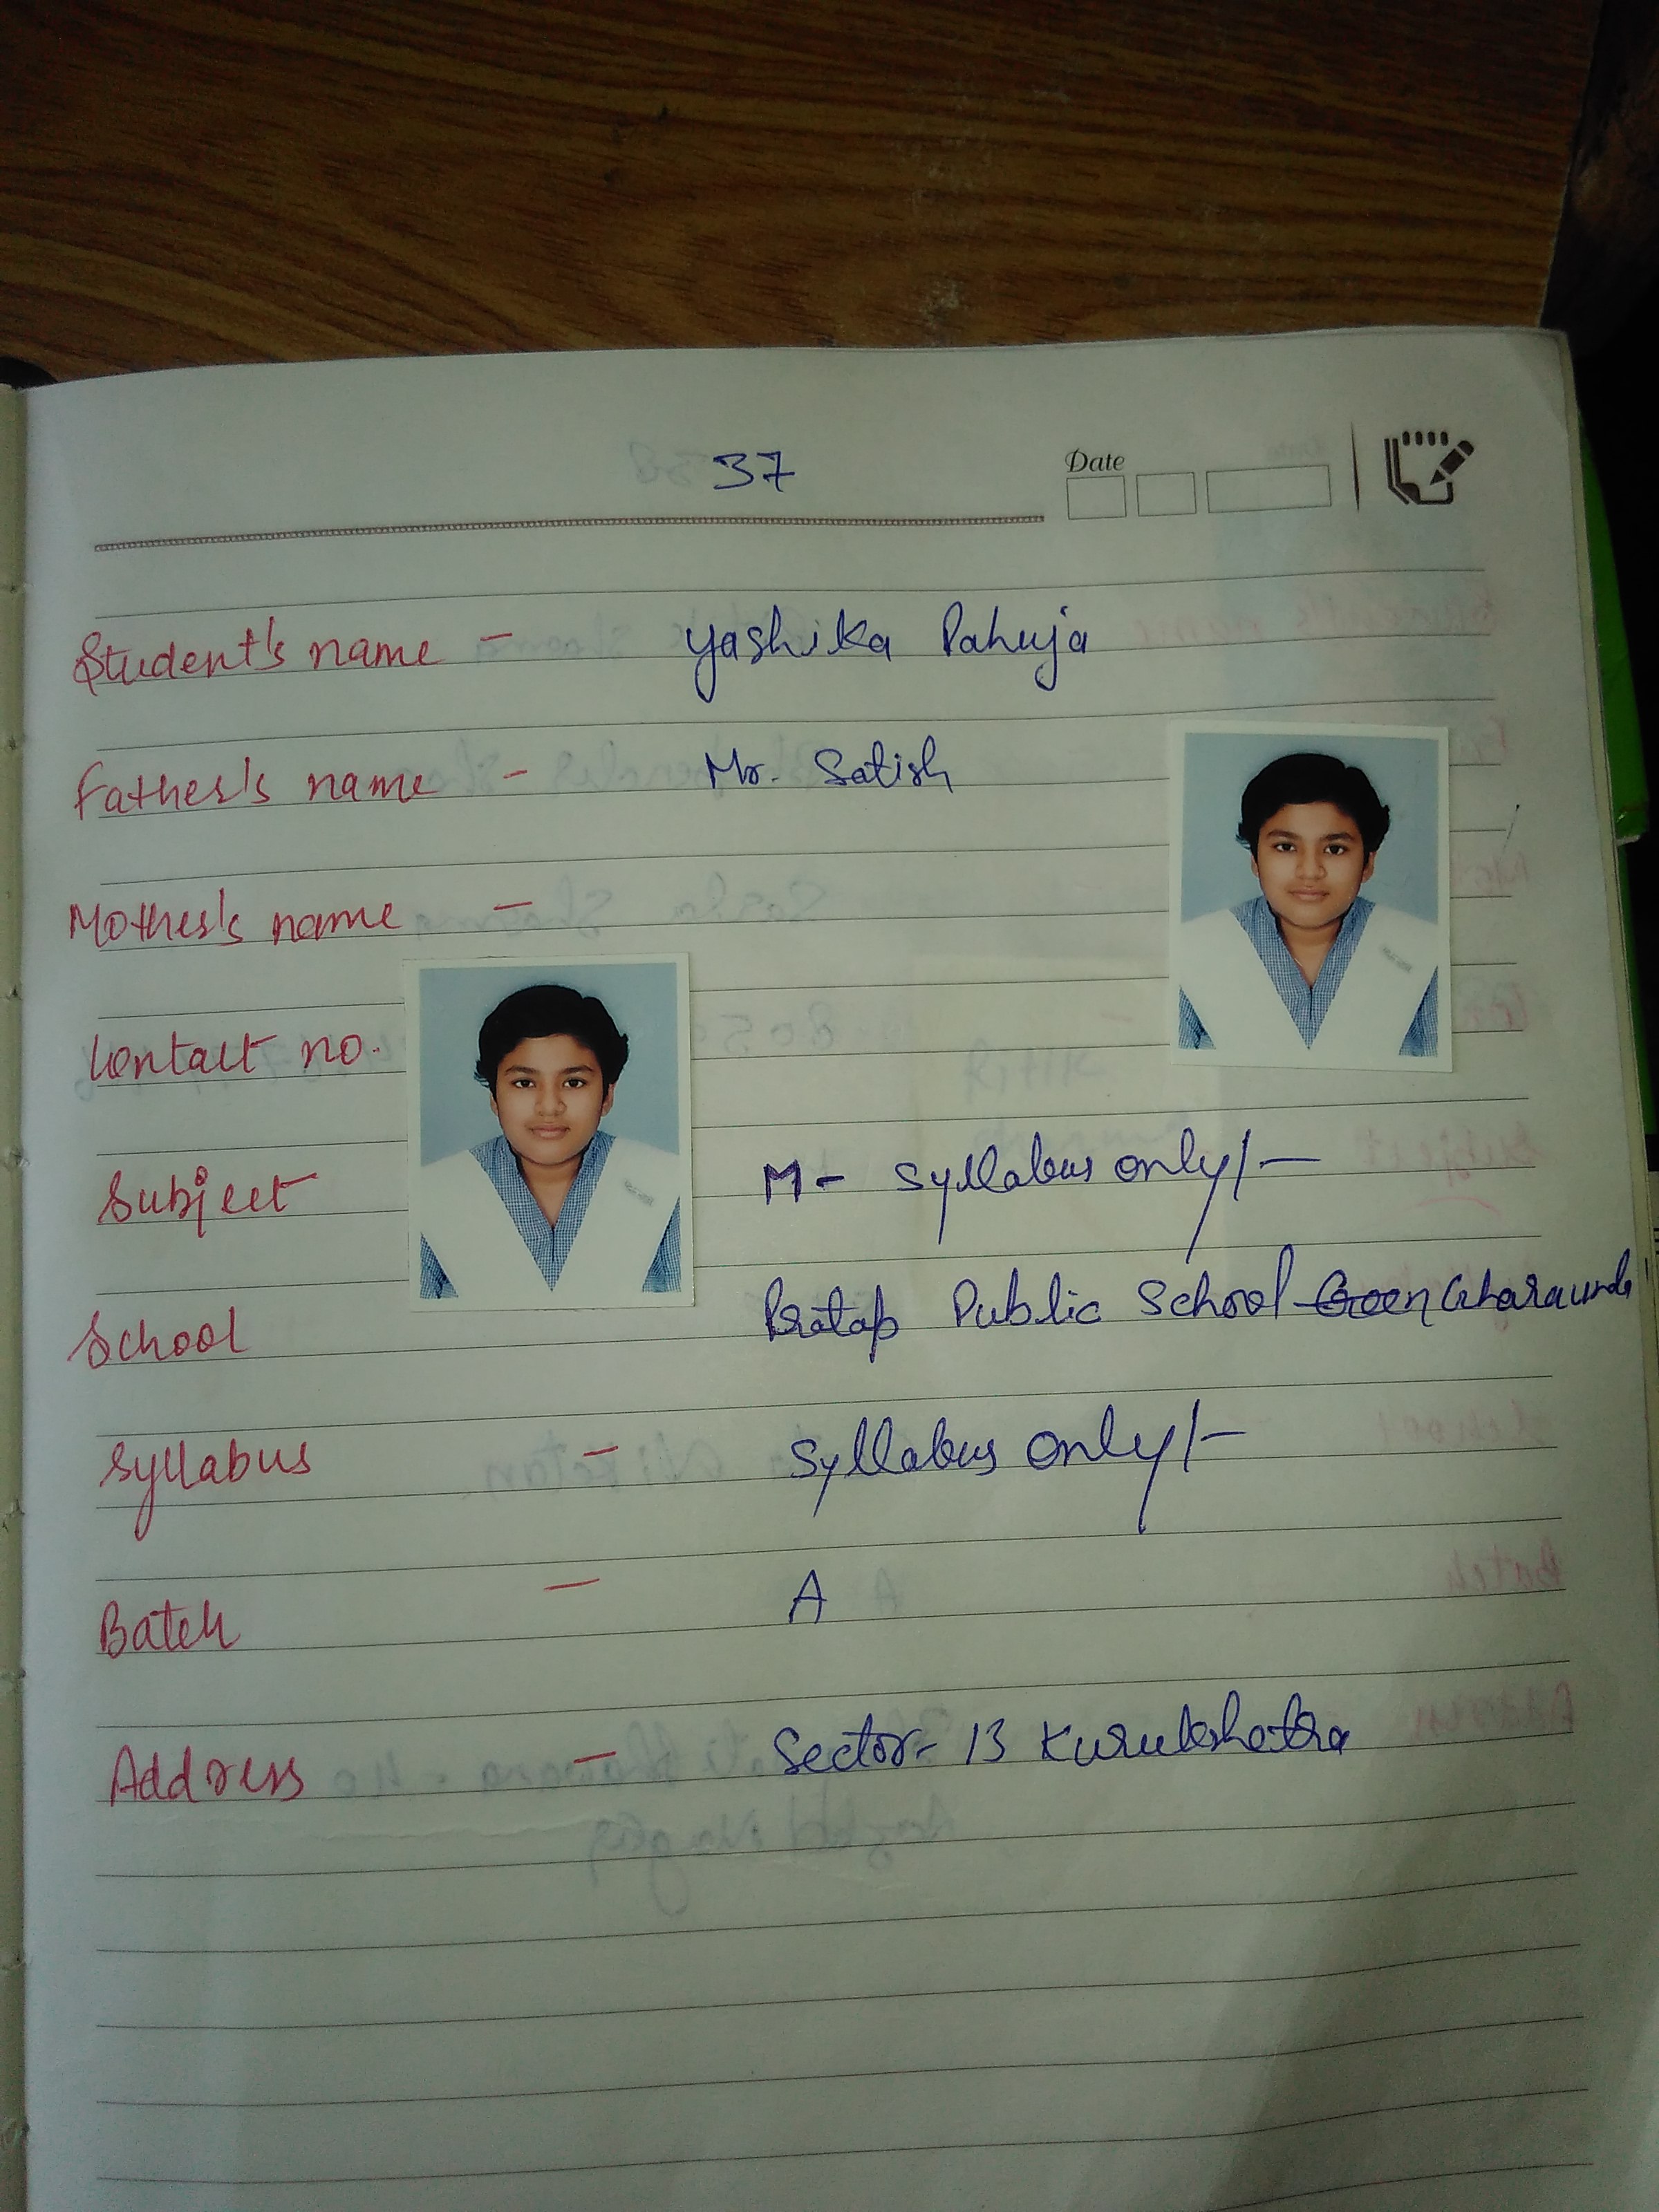 37
Date
Student's name - Yashika Pahuja
Father's name - Mr. Satish
Mother's name -
Contact no.
Subject M- Syllabus only/-
School Pratap Public School Gharaunda
Syllabus - Syllabus only/-
Batch - A
Address - Sector- 13 Kurukshetra